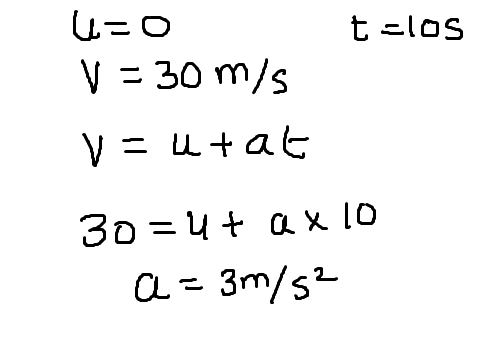 u = 0 t = 10s
v = 30 m/s
v = u + at
30 = u + a × 10
a = 3m/s²